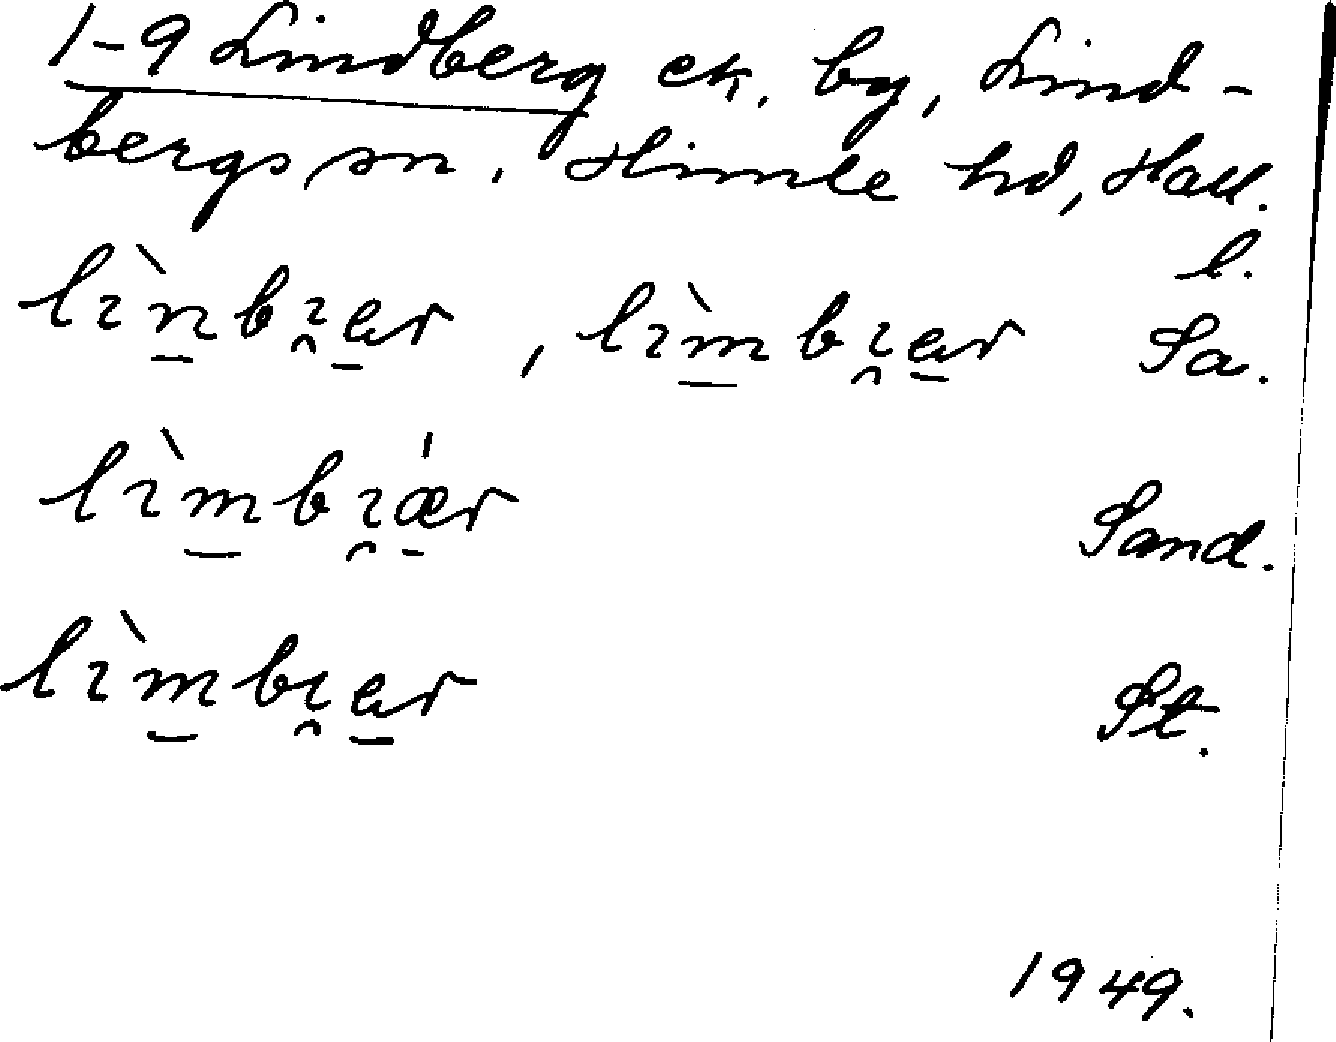 1-9 Lindberg ek. by, Lind-
bergs sn. Himle hd, Hall.
l.
lìn̠bı̯a̠r, lìm̠bı̯a̠r Sa.
lìm̠bı̯æ̠̍r Sand.
lìm̠bı̯a̠r St.
1949.